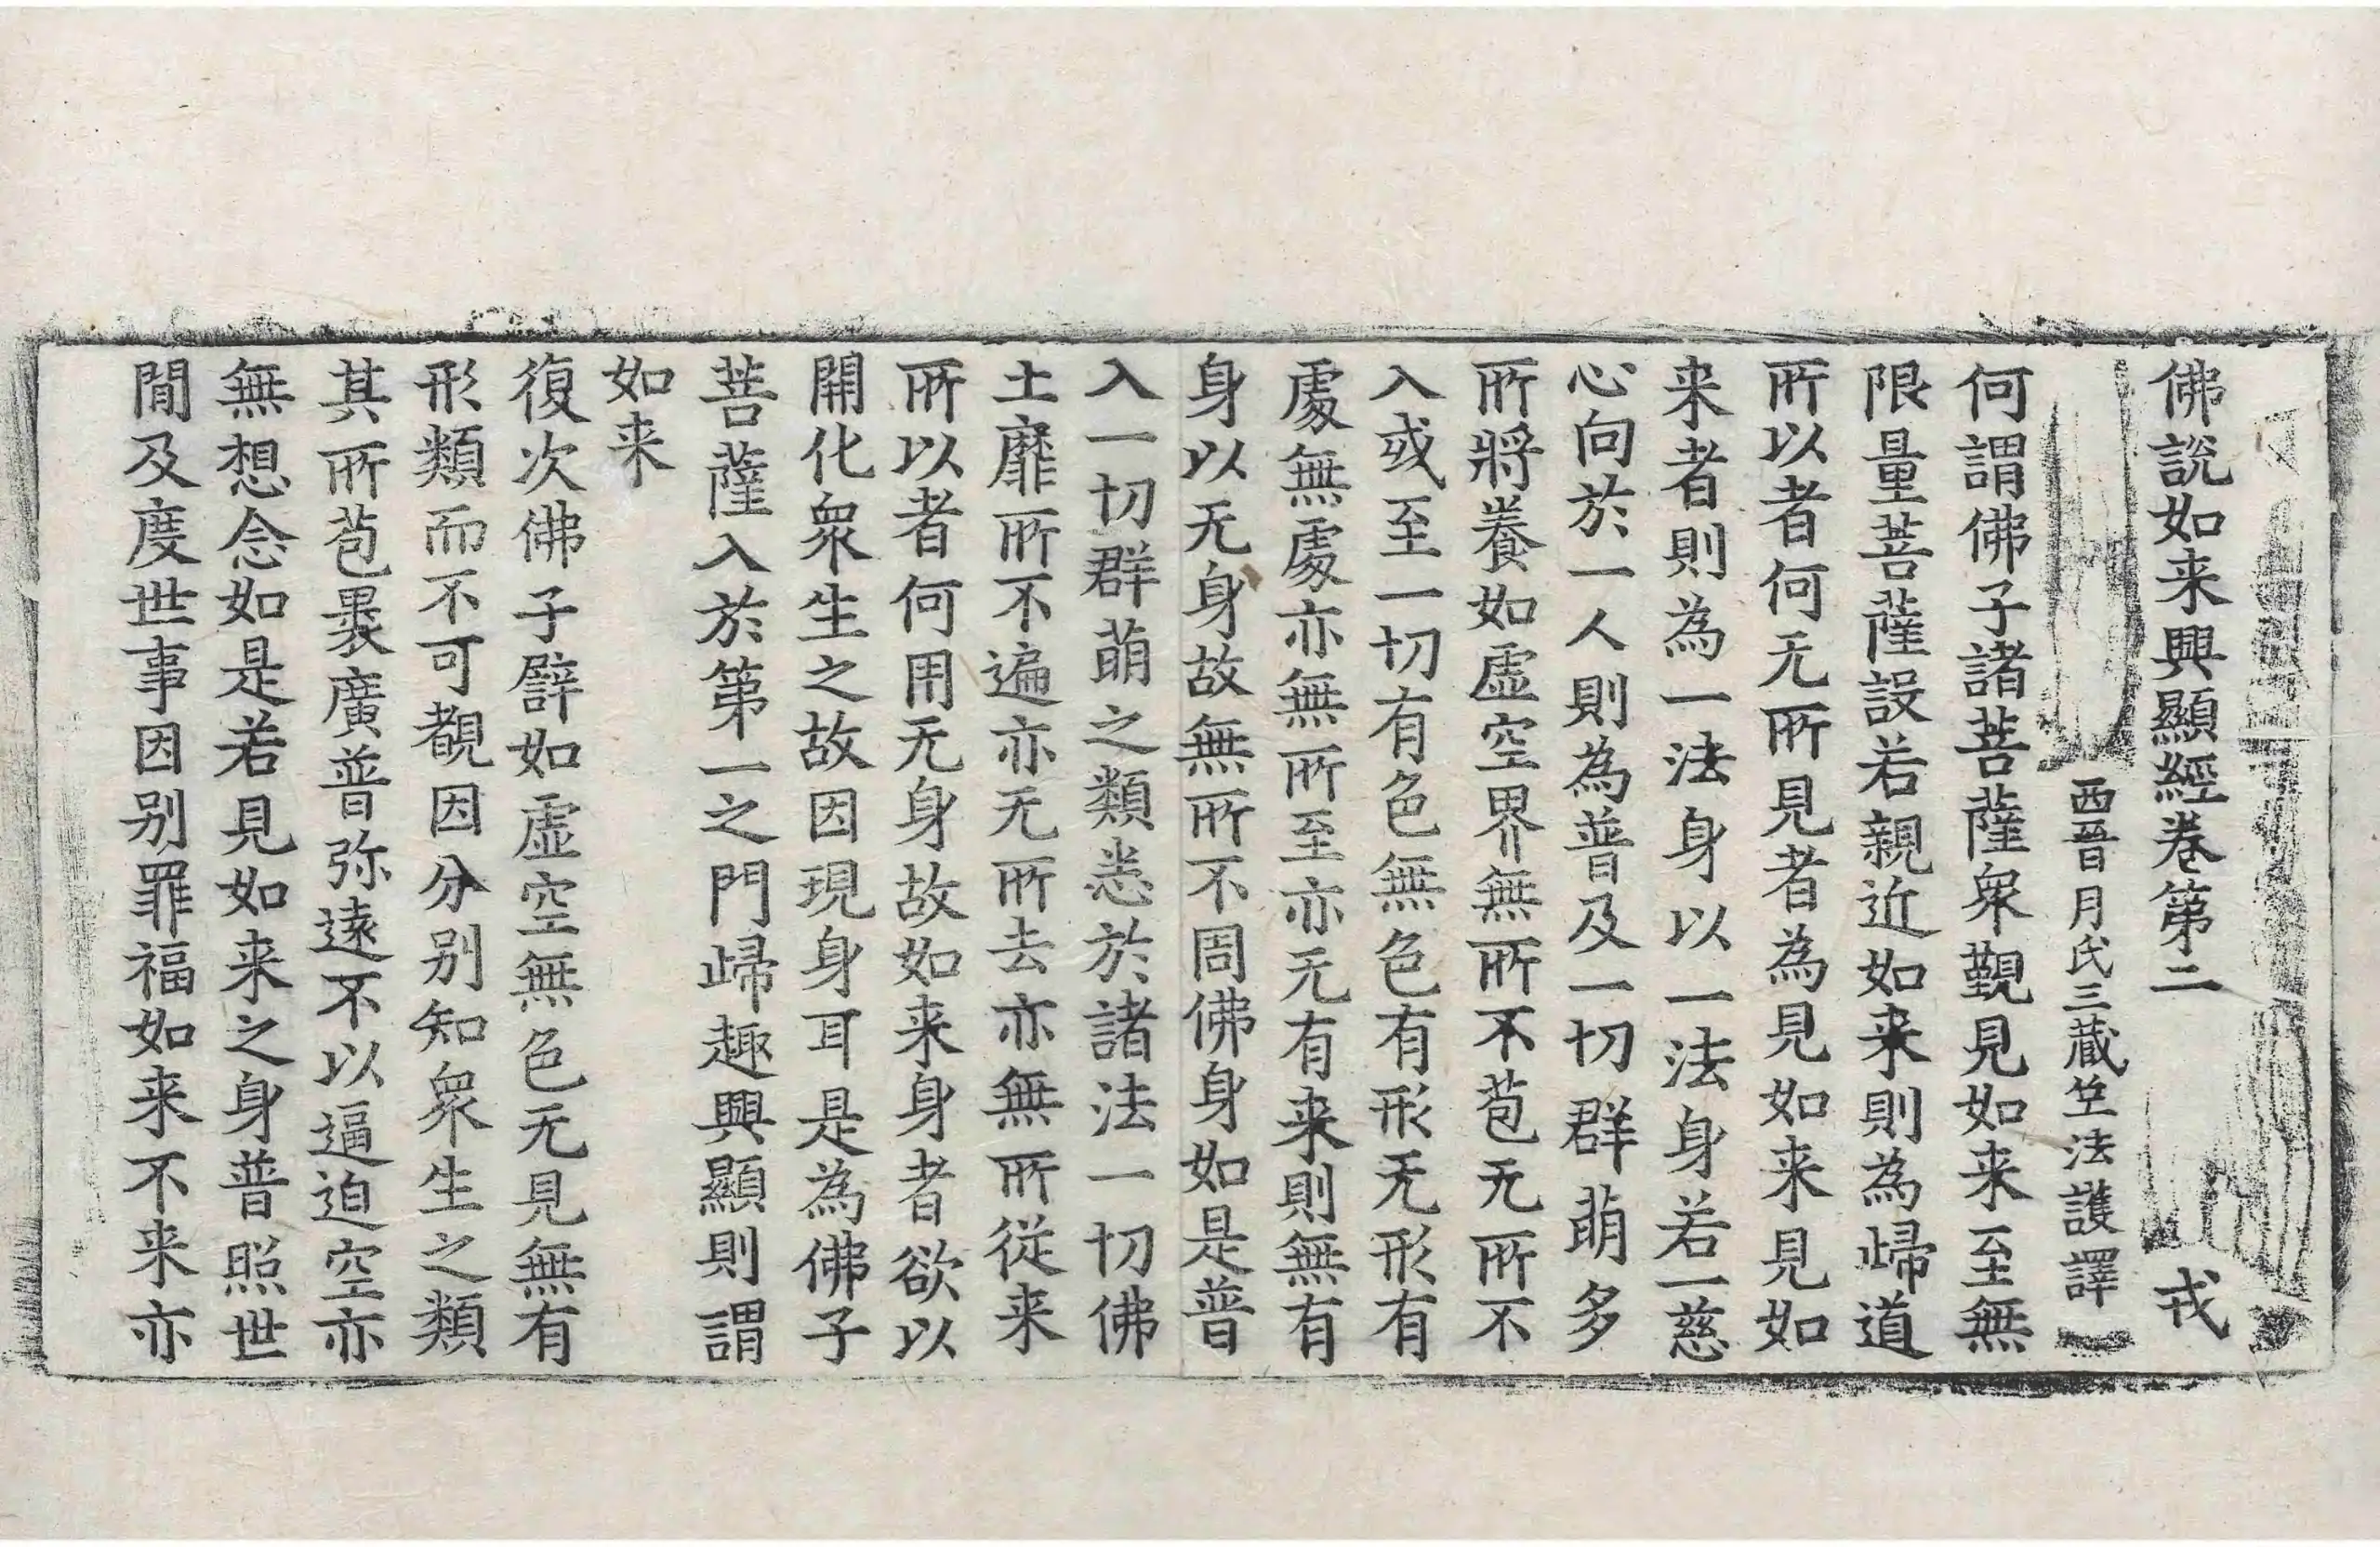 佛説如来興顯經卷第二 戎
西晉月氏三藏竺法護譯
何謂佛子諸菩薩衆覲見如来至無
限量菩薩設若親近如来則為歸道
所以者何无所見者為見如来見如
来者則為一法身以一法身若一慈
心向於一人則為普及一切群萠多
所將養如虛空界無所不苞无所不
入或至一切有色無色有形无形有
處無處亦無所至亦无有来則無有
身以无身故無所不周佛身如是普
入一切群萠之類悉於諸法一切佛
土靡所不遍亦无所去亦無所從来
所以者何用无身故如来身者欲以
開化衆生之故因現身耳是為佛子
菩薩入於第一之門歸趣興顯則謂
如来
復次佛子譬如虛空無色无見無有
形類而不可覩因分別知衆生之類
其所苞褁廣普弥遠不以逼迫空亦
無想念如是若見如来之身普照世
閒及度世事因别罪福如来不来亦